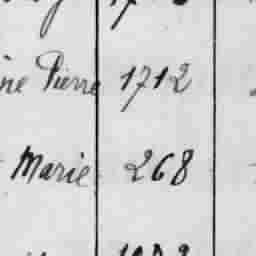 ne Pierre 1712
Marie 268